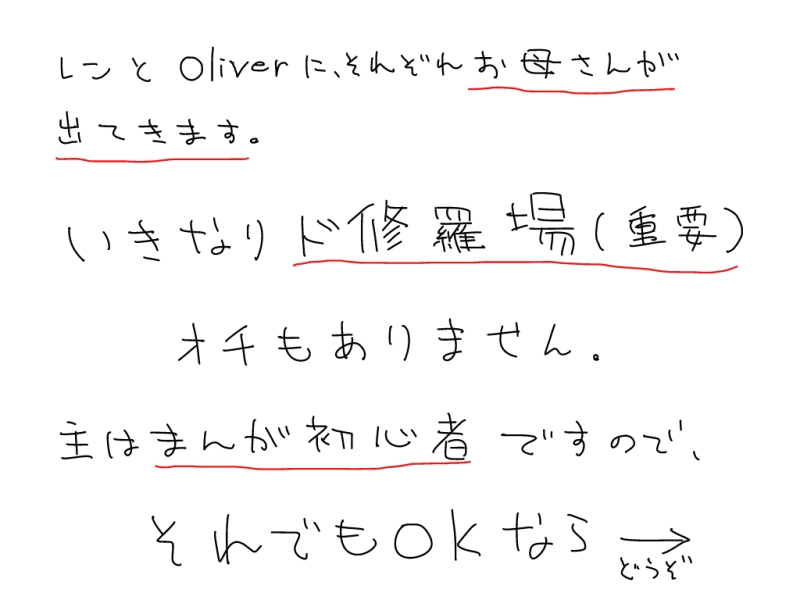 レンとOliverに、それぞれお母さんが
出てきます。
いきなりド修羅場(重要)
オチもありません.
主はまんが初心者ですので、
それでもOKなら→
どうぞ